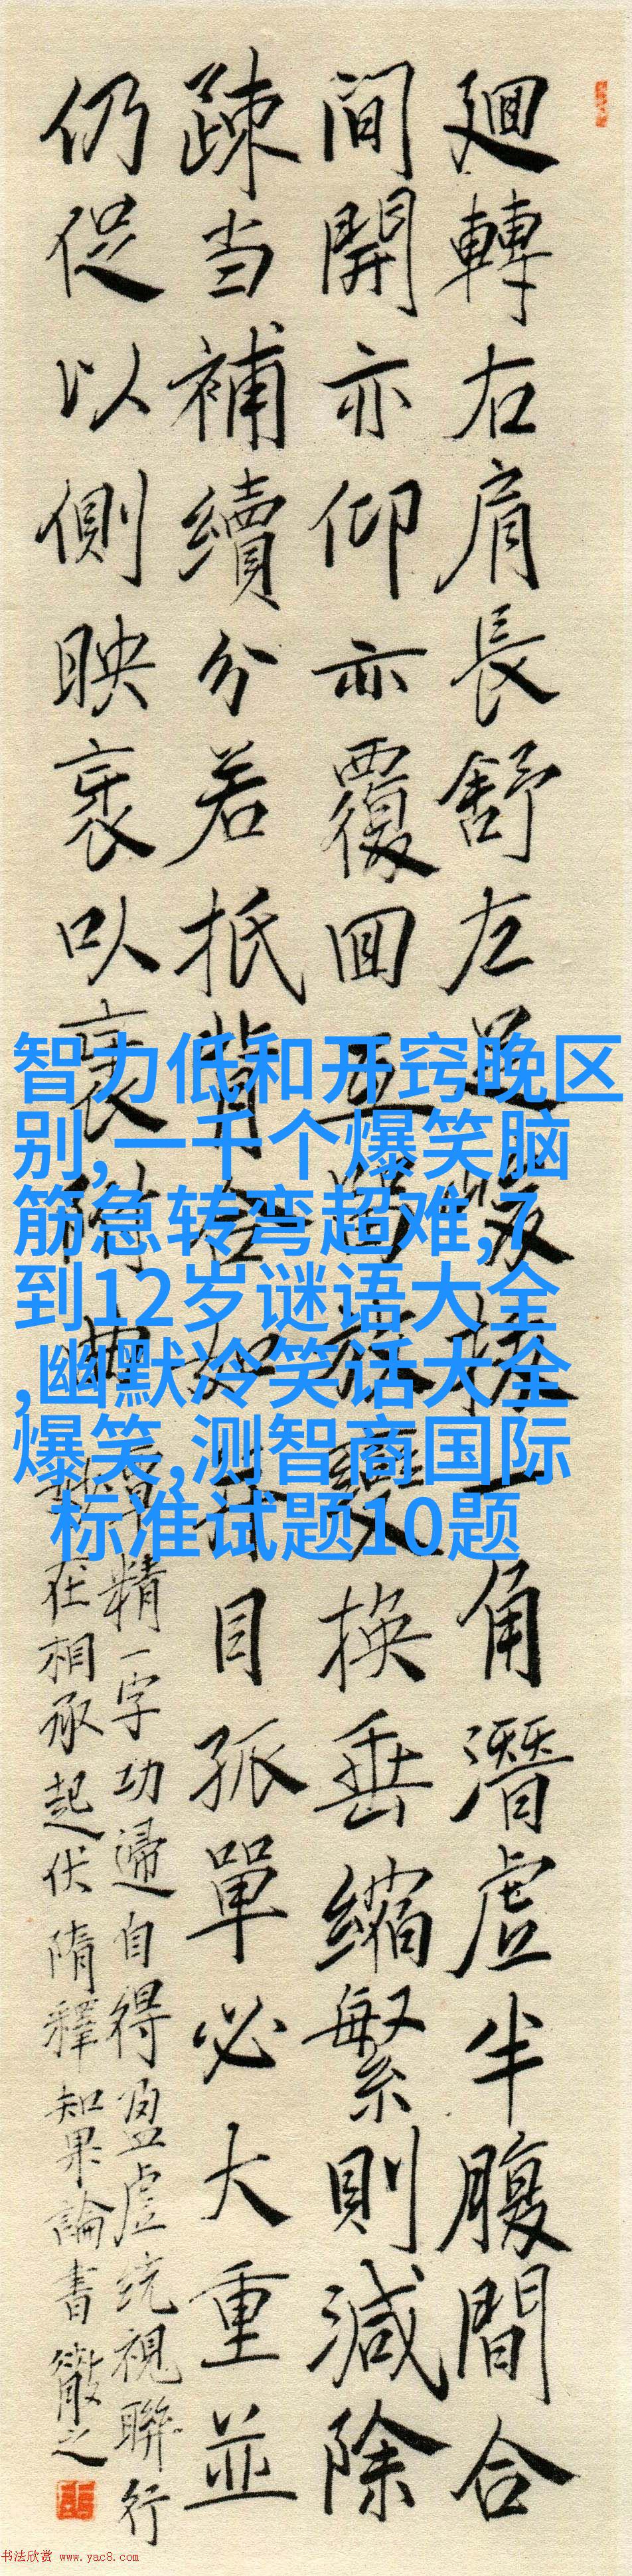 廻轉右肩長舒左足峻拔一角潛虛半腹間合
間開亦仰亦覆回互留放變換垂縮繁則減除
疎当補續分若抵背合如對目孤單必大重並
仍促以側映衺以衺附曲
覃精一字功歸自得盈虛統視聯行
妙在相承起伏隋釋智果論書
智力低和开窍晚区
别,一千个爆笑脑
筋急转弯超难,7
到12岁谜语大全
,幽默冷笑话大全
爆笑,测智商国际
标准试题10题
书法欣赏 www.yac8.com